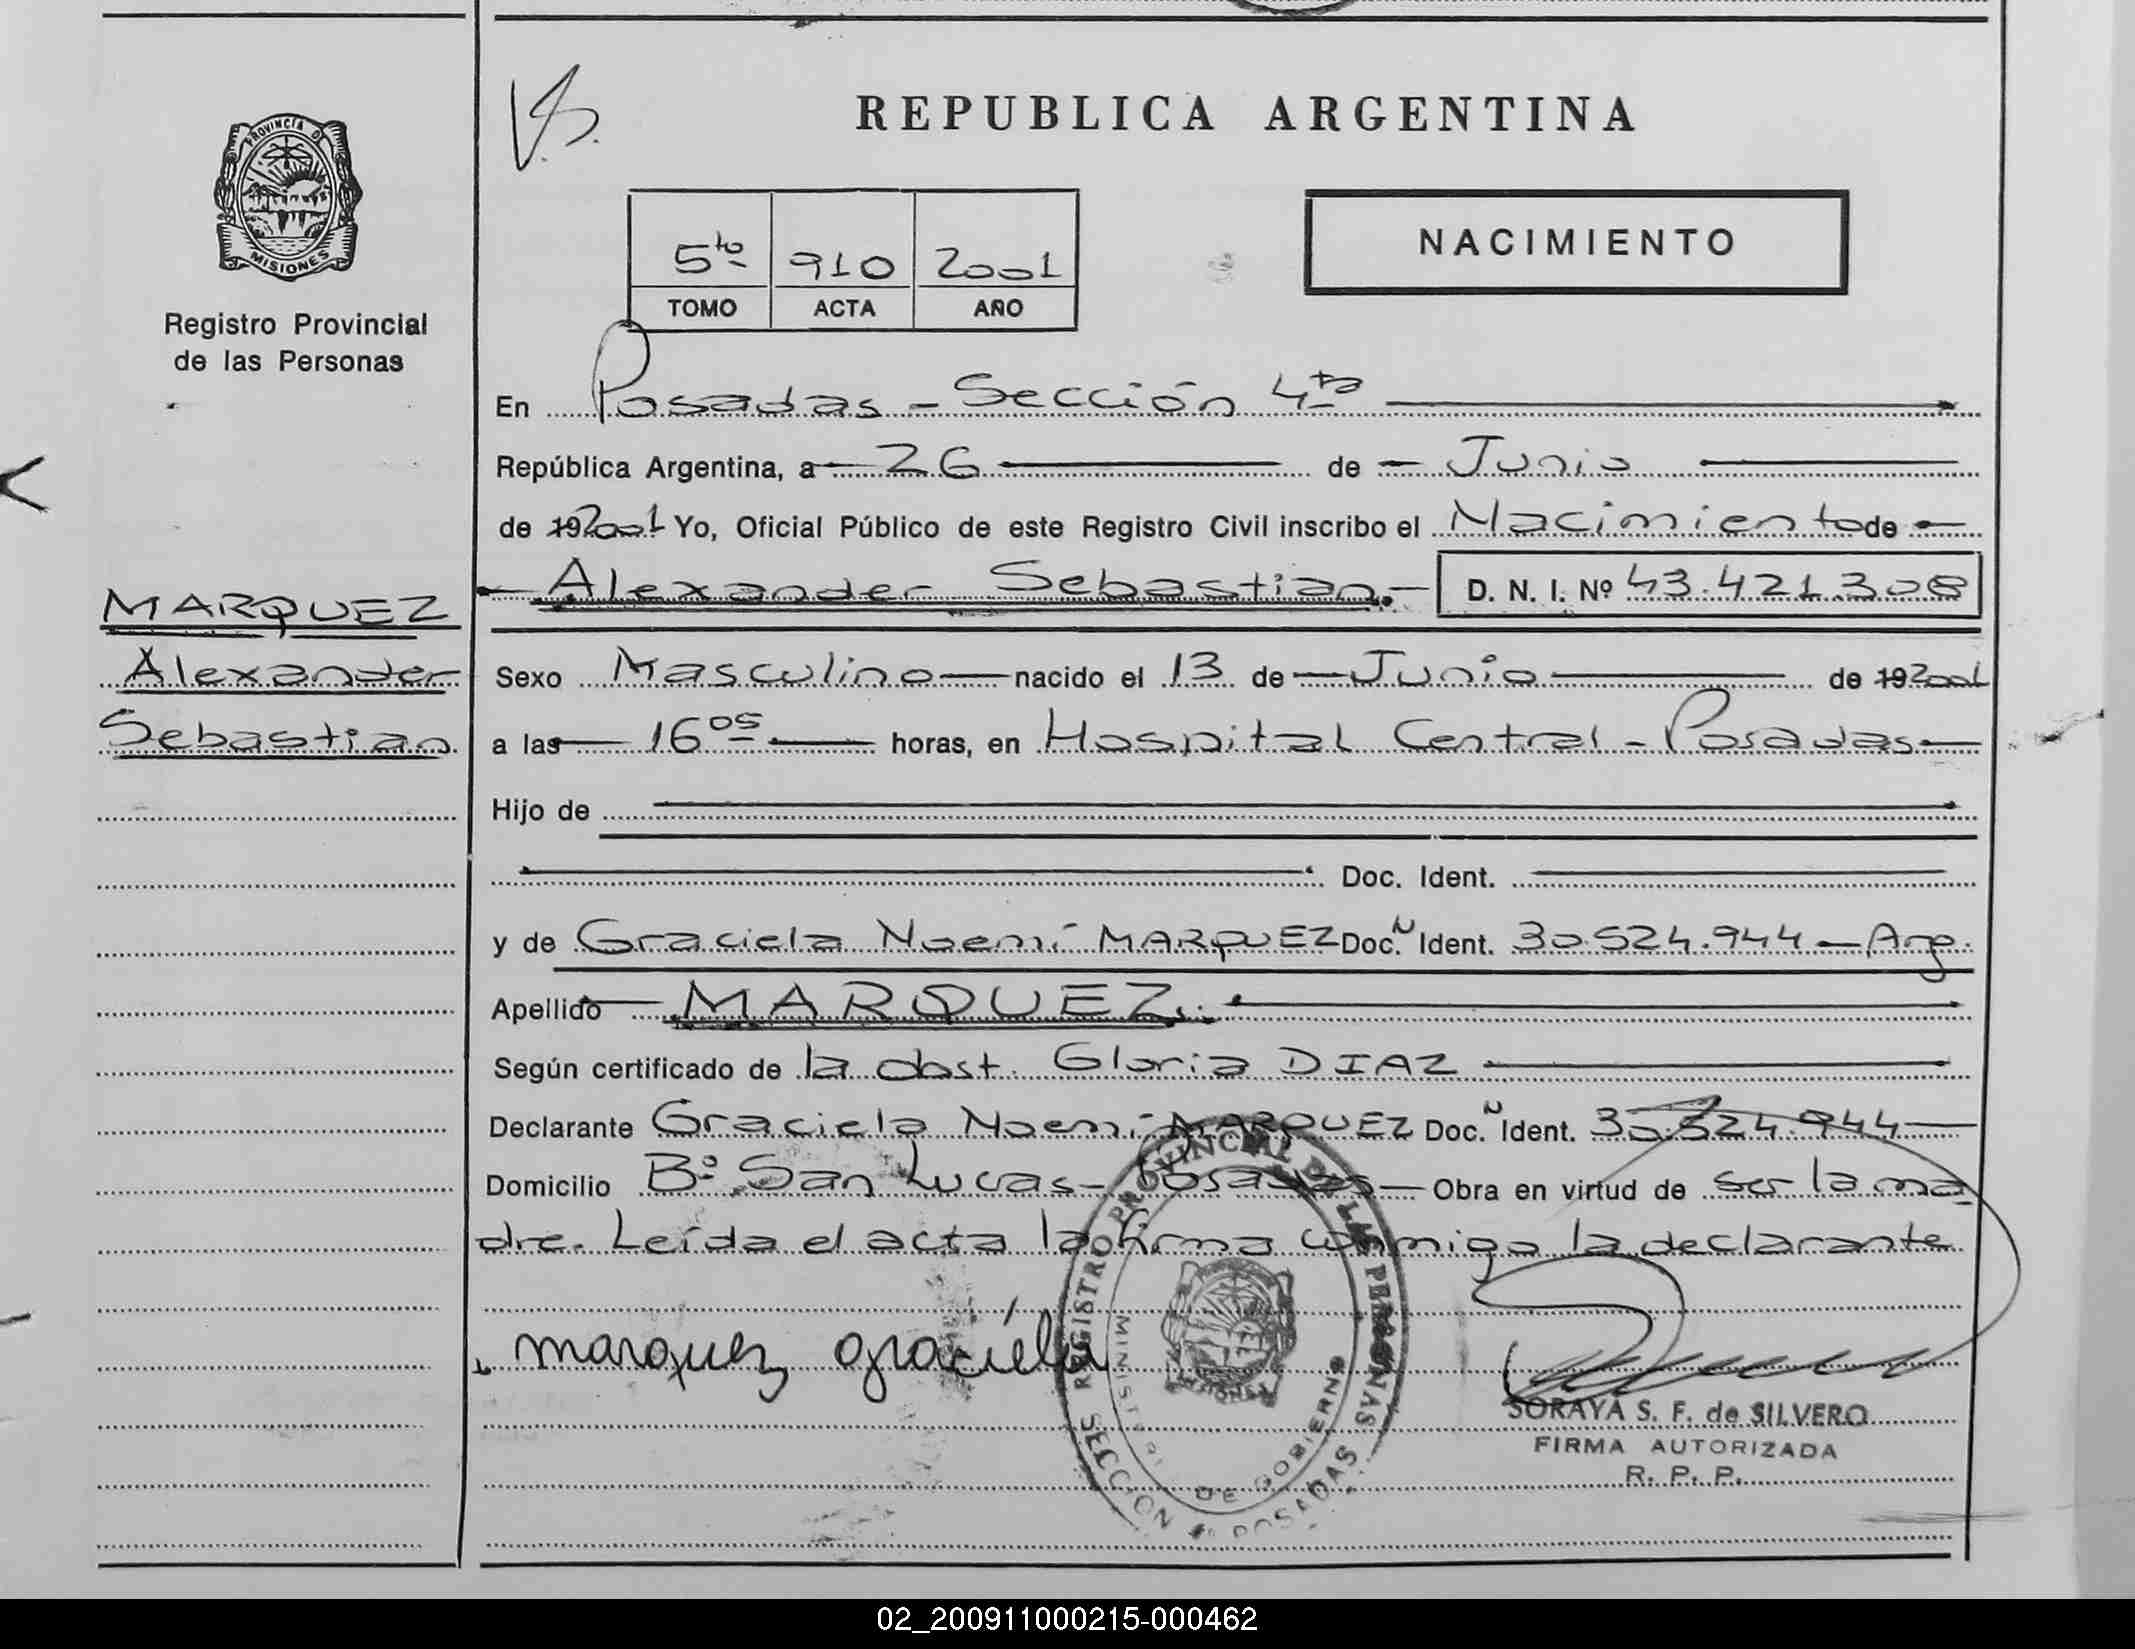 REPUBLICA ARGENTINA
PROVINCIA DE
MISIONES
Registro Provincial
de las Personas
5to 910 2001
TOMO ACTA AÑO
NACIMIENTO
En Posadas - Sección 4ta
República Argentina, a 26 de Junio
de 192001 Yo, Oficial Público de este Registro Civil inscribo el Nacimiento de
Alexander Sebastian.- D. N. I. Nº 43.421.308
MARQUEZ
Alexander
Sebastian
Sexo Masculino nacido el 13 de Junio de 192001
a las 16 05 horas, en Hospital Central - Posadas
Hijo de
Doc. Ident.
y de Graciela Noemí MARQUEZ Doc. Ident. 30.524.944 - Arg.
Apellido MARQUEZ.
Según certificado de la obst. Gloria DIAZ
Declarante Graciela Noemí MARQUEZ Doc. Ident. 30.524.944
Domicilio Bº San Lucas - Posadas - Obra en virtud de ser la ma
dre. Leída el acta la firma conmigo la declarante
marquez graciéla
REGISTRO PROVINCIAL DE LAS PERSONAS
MINISTERIO DE GOBIERNO
SECCION 4º POSADAS
SORAYA S. F. de SILVERO
FIRMA AUTORIZADA
R. P. P.
02_200911000215-000462